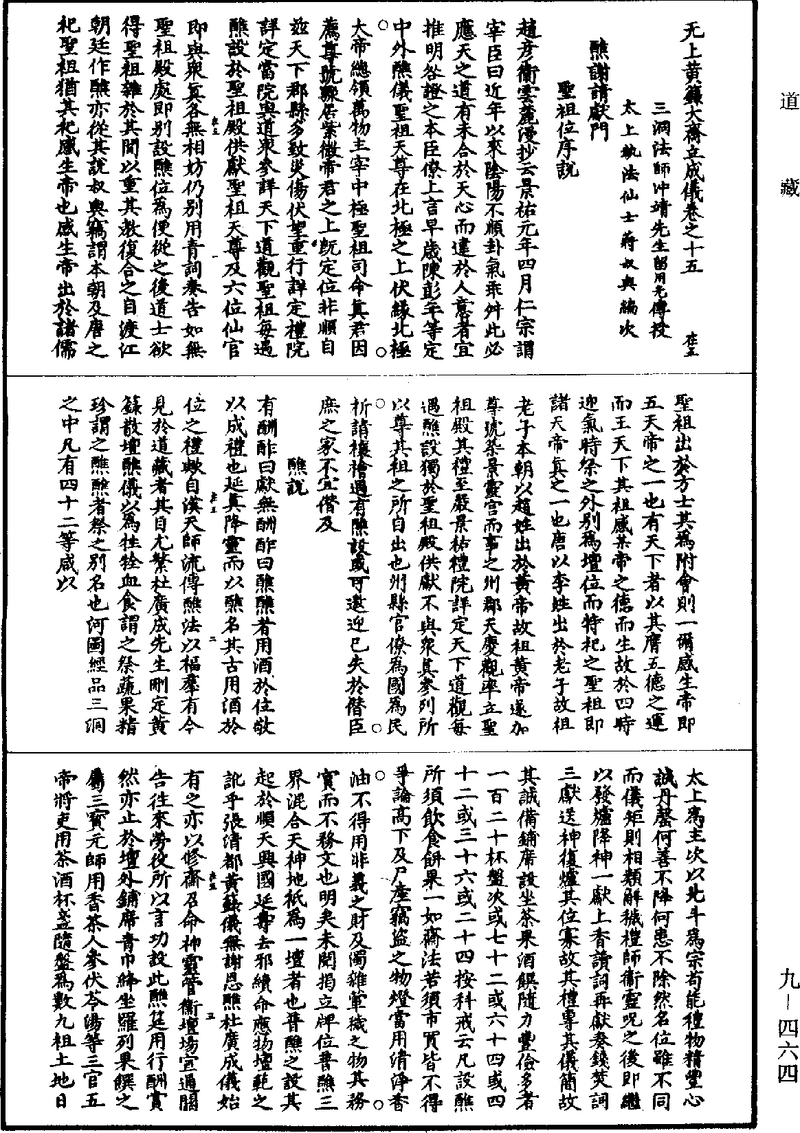 道藏
无上黃籙大齋立成儀卷之十五 在五
三洞法師沖靖先生留用光傳授
太上執法仙士蔣叔輿編次
醮謝請獻門
聖祖位序說
趙彥衞雲麓漫抄云景祐元年四月仁宗謂
宰臣曰近年以來陰陽不順卦氣乖舛此必
應天之道有未合於天心而違於人意者宜
推明咎證之本臣僚上言早歲陳彭年等定
中外醮儀聖祖天尊在北極之上伏緣北極
大帝總領萬物主宰中極聖祖司命真君因
薦尊號驟居紫微帝君之上旣定位非順自
玆天下郡縣多致災傷伏望重行詳定禮院
詳定當院與道衆參詳天下道觀聖祖每遇
醮設於聖祖殿供獻聖祖天尊及六位仙官
即與衆真各無相妨仍別用青詞奏告如無
聖祖殿處即別設醮位爲便從之後道士欲
得聖祖雜於其間以重其教復合之自渡江
朝廷作醮亦從其說叔輿竊謂本朝及唐之
祀聖祖猶其祀感生帝也感生帝出於諸儒
聖祖出於方士其爲附會則一爾感生帝即
五天帝之一也有天下者以其膺五德之運
而王天下其祖感某帝之德而生故於四時
迎氣時祭之外別爲壇位而特祀之聖祖即
諸天帝真之一也唐以李姓出於老子故祖
老子本朝以趙姓出於黃帝故祖黃帝遂加
尊號築景靈宮而事之州郡天慶觀率立聖
祖殿其禮至嚴景祐禮院詳定天下道觀每
遇醮設獨於聖祖殿供獻不與衆真參列所
以尊其祖之所自出也州縣官僚爲國爲民
祈請禳禬遇有醮設或可邀迎已失於僭臣
庶之家不宜僭及
醮說
有酬酢曰獻無酬酢曰醮醮者用酒於位敬
以成禮也延真降靈而以醮名其古用酒於
位之禮歟自漢天師流傳醮法以福羣有今
見於道藏者其目尤繁杜廣成先生刪定黃
籙散壇醮儀以爲牲牷血食謂之祭蔬果精
珍謂之醮醮者祭之別名也河圖經品三洞
之中凡有四十二等咸以
太上爲主次以北斗爲宗苟能禮物精豐心
誠丹罄何善不降何患不除然名位雖不同
而儀矩則相類解穢禮師衞靈呪之後即繼
以發爐降神一獻上香讀詞再獻奏錢焚詞
三獻送神復爐其位寡故其禮專其儀簡故
其誠備鋪席設坐茶果酒饌隨力豐儉多者
一百二十杯盤次或七十二或六十四或四
十二或三十六或二十四按科戒云凡設醮
所須飲食餅果一如齋法若須市買皆不得
爭論高下及尸產竊盜之物燈當用清淨香
油不得用非義之財及濁雜葷穢之物其務
實而不務文也明矣未聞揭立牌位普醮三
界混合天神地祇爲一壇者也普醮之設其
起於順天興國延壽去邪續命應物壇範之
訛乎張清都黃籙儀無謝恩醮杜廣成儀始
有之亦以修齋召命神靈管衞壇場宣通關
告往來勞役所以言功設此醮筵用行酬賞
然亦止於壇外鋪席青巾絳坐羅列果饌之
屬三寶元師用香茶人參伏苓湯等三官五
帝將吏用茶酒杯盞隨盤爲數九祖土地日
九－四六四